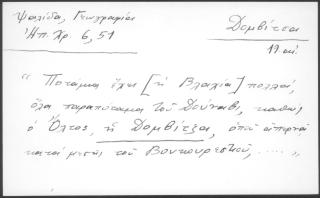 Ψαλίδα, Γεωγραφία
Ἠπ. Χρ. 6, 51
Δομβίτσα
19 αἰ.
“ Ποτάμια ἔχει [ἡ Βλαχία] πολλά,
ὅλα παραπόταμα τοῦ Δούναβι, καθώς
ὁ Ὄλτος, ἡ Δομβίτζα, ὁποῦ ἀπερνᾶ
κατά μεσῆς τοῦ Βουκουρεστιοῦ, .... „